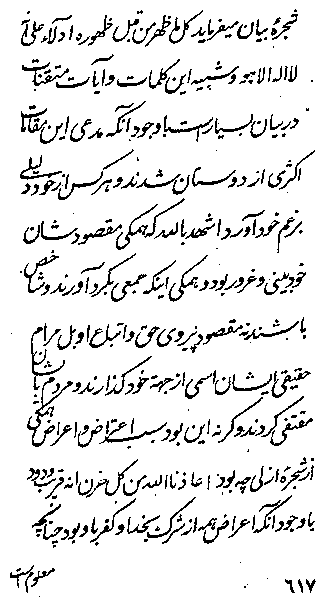 شجرهٔ بیان میفرماید کل ما ظهر من قبل ظهوره ادلاء علی
لااله الا هو و شبیه این کلمات و آیات متقنات
در بیان بسیار است با وجود آنکه مدعی این مقامات
اکثری از دوستان شدند و هر کس از خود دلیلی
بزعم خود آورد اشهد بالله که همگی مقصودشان
خودبینی و غرور بود و همگی اینکه جمعی بگرد آورند و شاخص
باشند نه مقصود پیروی حق و اتباع او بل مرام
حقیقی ایشان اسمی از جهة خود گذارند و مردم باشان
مقتفی گردند و گرنه این بود سبب اعتراض و اعراض همگی
از شجرهٔ ازلی چه بود اعاذنا الله من کل حزن انه قریب ودود
با وجود آنکه اعراض همه از شرک بخدا و کفر باو بود چنانچه
معلوم است
٦١٧